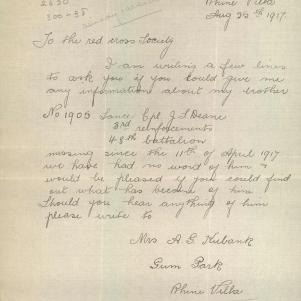 2630
300-35
Rhine Villa
Aug 25th 1917.
To the red cross Society
I am writing a few lines
to ask you if you could give me
any information about my brother
No 1905 Lance Cpl J L Deane
3rd reinforcements
48th battalion
missing since the 11th of April 1917
we have had no word of him &
would be pleased if you could find
out what has become of him.
Should you hear anything of him
please write to
Mrs A G Kubank
Gum Park
Rhine Villa